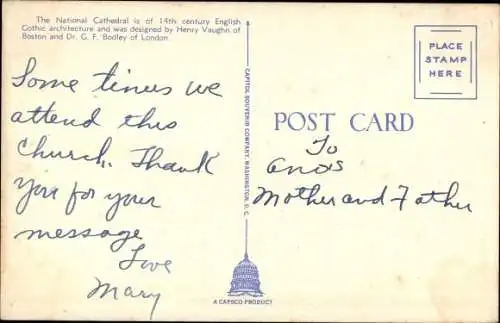 The National Cathedral is of 14th century English
Gothic architecture and was designed by Henry Vaughn of
Boston and Dr. G. F. Bodley of London.
Some times we
attend this
Church. Thank
you for your
message
Love
Mary
CAPITOL SOUVENIR COMPANY, WASHINGTON, D. C.
A CAPSCO PRODUCT
PLACE
STAMP
HERE
POST CARD
To
Mother and Father